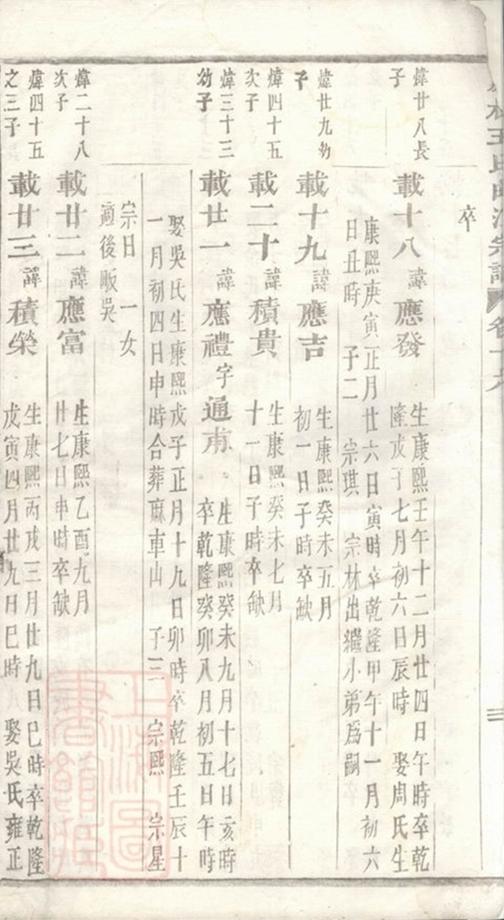 王氏
宗譜
卷
三
卒
煒廿八長
子
載十八 諱應發
生康熙壬午十二月廿四日午時卒乾
隆戊子七月初六日辰時 娶周氏生
康熙庚寅正月廿六日寅時卒乾隆甲午十一月初六
日丑時 子二 宗琪 宗林出繼小弟為嗣
煒廿九幼
子
載十九 諱應吉
生康熙癸未五月
初一日子時卒缺
煒四十五
次子
載二十 諱積貴
生康熙癸未七月
十一日子時卒缺
煒三十三
幼子
載廿一 諱應禮字通甫
生康熙癸未九月十七日亥時
卒乾隆癸卯八月初五日午時
娶吳氏生康熙戊子正月十九日卯時卒乾隆壬辰十
一月初四日申時合葬麻車山 子三 宗熙 宗星
宗日 一女
適後畈吳
煒二十八
次子
載廿二 諱應富
生康熙乙酉九月
廿七日申時卒缺
煒四十五
之三子
載廿三 諱積榮
生康熙丙戌三月廿九日巳時卒乾隆
戊寅四月廿九日巳時 娶吳氏雍正
上海圖
書館藏